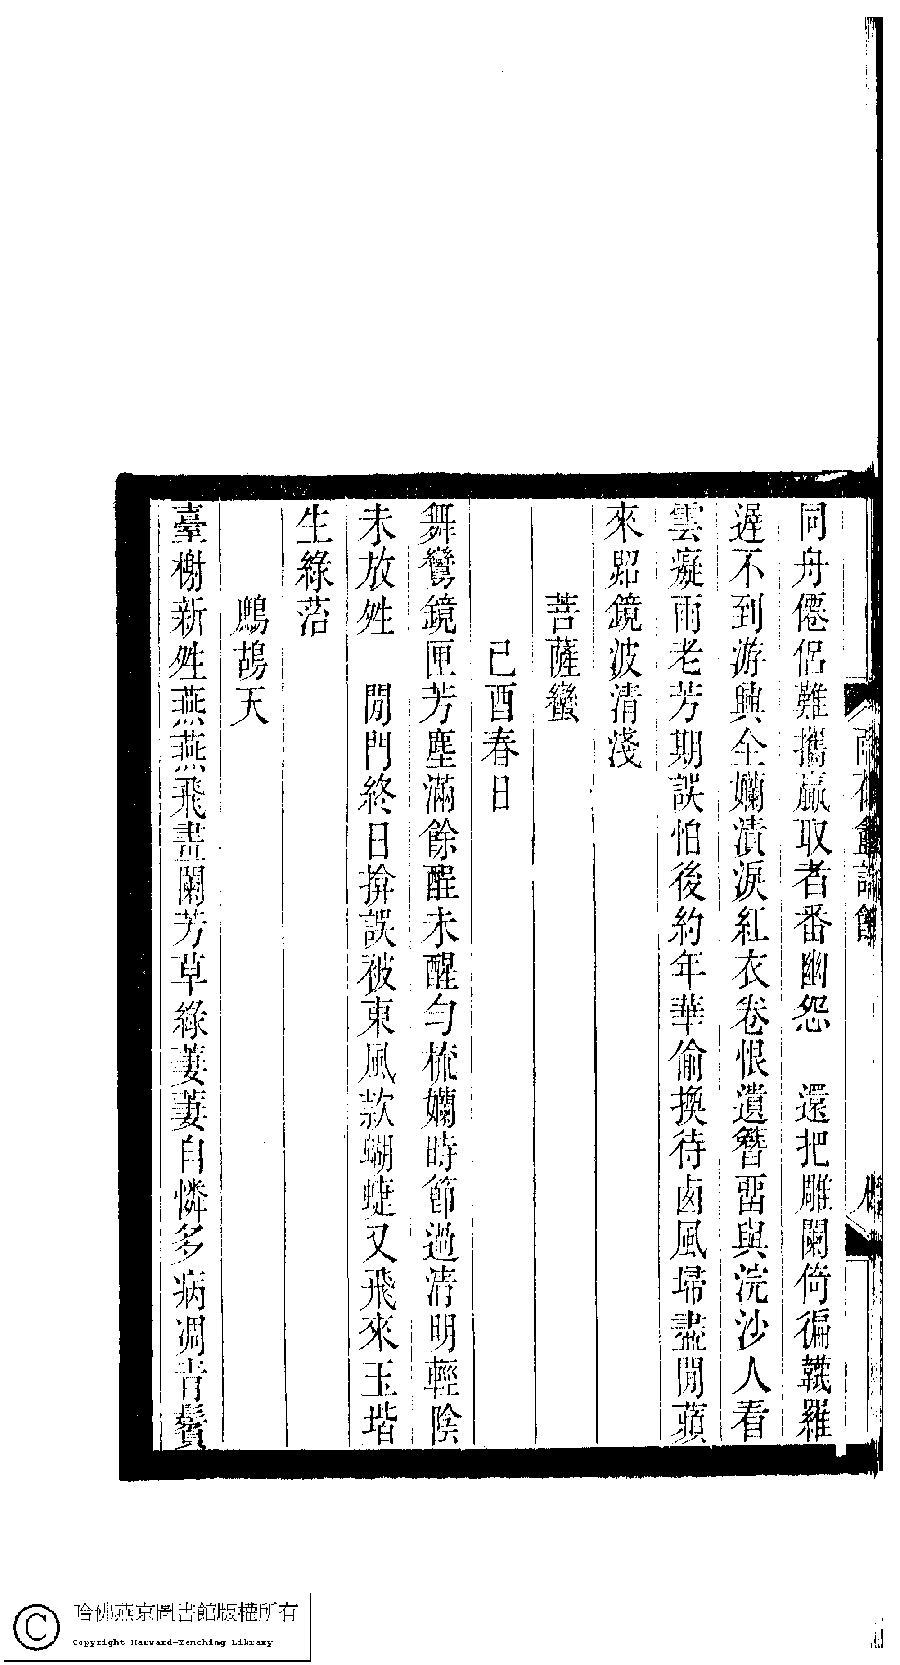 同舟僊侶難攜贏取者番幽怨　還把雕闌倚徧韤羅
遲不到游興全孏漬淚紅衣卷恨遺簪畱與浣沙人看
雲癡雨老芳期誤怕後約年華偷換待鹵風埽盡閒蘋
來照鏡波清淺
菩薩蠻
己酉春日
舞鸞鏡匣芳塵滿餘酲未醒勻梳孏時節過淸明輕陰
未放姓　閒門終日揜誤被東風款蝴蜨又飛來玉堦
生綠菭
鷓鴣天
臺榭新姓燕燕飛畫闌芳草綠萋萋自憐多病凋靑鬢
哈佛燕京圖書館版權所有
Copyright Harvard-Yenching Library